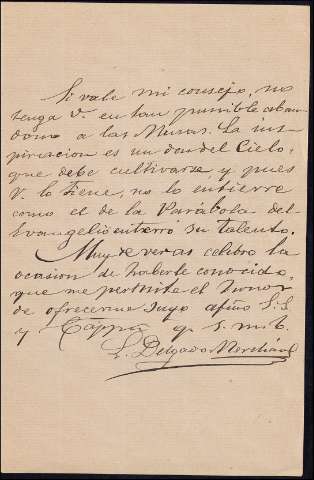 Si vale mi consejo, no
tenga V. en tan punible aban
dono a las Musas. La ins-
piracion es un don del Cielo,
que debe cultivarse y pues
V. lo tiene, no lo entierre
como el de la Parábola del
Evangelio enterro su talento.
Muy de veras celebro la
ocasion de haberle conocido,
que me permite el honor
de ofrecerme suyo afmo S.S.
y Cappn q. s. m. b.
L. Delgado Merchán